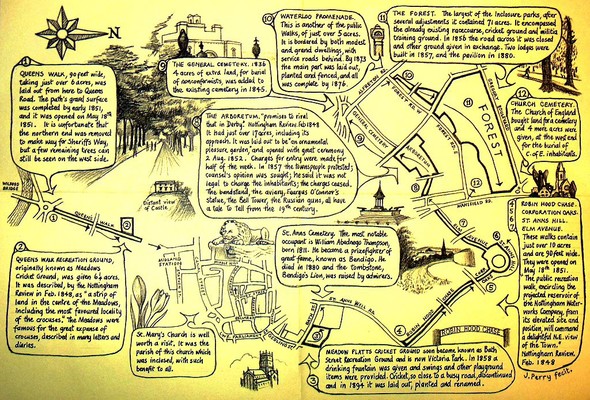 N
1
QUEENS WALK, 90 feet wide,
taking just over 6 acres, was
laid out from here to Queens
Road. The path's gravel surface
was completed by early 1851,
and it was opened on May 18th
1851. It is unfortunate that
the northern end was removed
to make way for Sheriffs Way,
but a few remaining trees can
still be seen on the west side.
9
THE GENERAL CEMETERY. 1836
4 acres of extra land, for burial
of nonconformists, was added to
the existing cemetery in 1845.
10
WATERLOO PROMENADE.
This is another of the public
Walks, of just over 5 acres.
It is bordered by both modest
and grand dwellings, with
service roads behind. By 1873
the main part was laid out,
planted and fenced, and all
was complete by 1876.
11
THE FOREST. The largest of the Inclosure parks, after
several adjustments it contained 71 acres. It encompassed
the already existing racecourse, cricket ground and militia
training ground. In 1858 the road across it was closed
and other ground given in exchange. Two lodges were
built in 1857, and the pavilion in 1880.
12
CHURCH CEMETERY.
The Church of England
bought land for a cemetery
and 4 more acres were
given, at the west end
for the burial of
C. of E. inhabitants.
8
THE ARBORETUM, "promises to rival
that in Derby." Nottingham Review Feb 1848
It had just over 17 acres, including its
approach. It was laid out to be "an ornamental
pleasure garden," and opened with great ceremony
2 Aug. 1852. Charges for entry were made for
half of the week. In 1857 the townspeople protested;
counsel's opinion was sought; he said it was not
legal to charge the inhabitants; the charges ceased.
The bandstand, the aviary, Feargus O'Connor's
statue, the Bell Tower, the Russian guns, all have
a tale to tell from the 19th century.
Distant view
of Castle
WILFORD
BRIDGE
QUEENS WALK
MIDLAND
STATION
2
QUEENS WALK RECREATION GROUND,
originally known as Meadows
Cricket Ground, was given 6¼ acres.
It was described, by the Nottingham
Review in Feb. 1848, as "a strip of
land in the centre of the Meadows,
including the most favoured locality
of the crocuses." The Meadows were
famous for the great expanse of
crocuses, described in many letters and
diaries.
St. Mary's Church is well
worth a visit. It was the
parish of this church which
was inclosed, with such
benefit to all.
St. Anns Cemetery. The most notable
occupant is William Abednego Thompson,
born 1811. He became a prizefighter of
great fame, known as Bendigo. He
died in 1880 and the tombstone,
Bendigo's Lion, was raised by admirers.
ALFRETON RD.
FOREST RD.
FOREST RD.
FOREST
ARBORETUM
MANSFIELD RD.
ELM AVENUE
ST. ANNS WELL RD.
ROBIN HOOD CHASE
3
MEADOW PLATTS CRICKET GROUND soon became known as Bath
Street Recreation Ground and is now Victoria Park. In 1858 a
drinking fountain was given and swings and other playground
items were provided. Cricket, so close to a busy road, discontinued
and in 1894 it was laid out, planted and renamed.
4
5
6
7
ROBIN HOOD CHASE.
CORPORATION OAKS.
ST. ANNS HILL.
ELM AVENUE.
These walks contain
just over 10 acres
and are 90 feet wide.
They were opened on
May 18th 1851.
"The public recreation
walk, encircling the
projected reservoir of
the Nottingham Water-
works Company, from
its elevated site and
position, will command
a delightful N.E. view
of the Town."
Nottingham Review.
Feb. 1848
J. Perry fecit.